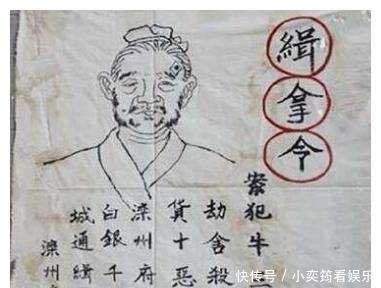 緝拿令
案犯牛
劫舍殺
貨十惡
滦州府
白銀千
城通緝
滦州
快传号 / 小奕筠看娱乐